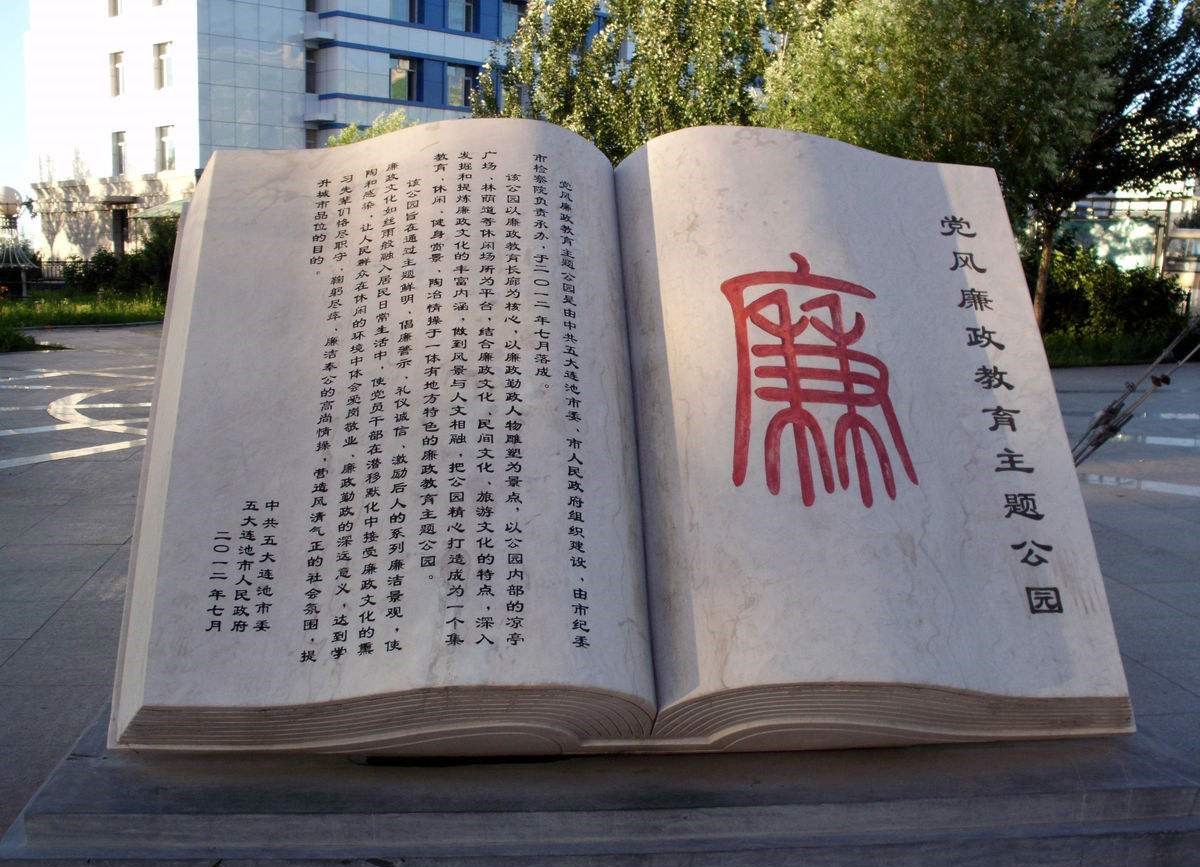 党风廉政教育主题公园
廉
党风廉政教育主题公园是由中共五大连池市委、市人民政府组织建设，由市纪委
市检察院负责承办，于二〇一二年七月落成。
该公园以廉政教育长廊为核心，以廉政勤政人物雕塑为景点，以公园内部的凉亭
广场、林荫道等休闲场所为平台，结合廉政文化、民间文化、旅游文化的特点，深入
发掘和提炼廉政文化的丰富内涵，做到风景与人文相融，把公园精心打造成为一个集
教育、休闲、健身赏景、陶冶情操于一体有地方特色的廉政教育主题公园。
该公园旨在通过主题鲜明，倡廉警示、礼仪诚信、激励后人的系列廉洁景观，使
廉政文化如丝雨般融入居民日常生活中，使党员干部在潜移默化中接受廉政文化的熏
陶和感染，让人民群众在休闲的环境中体会爱岗敬业、廉政勤政的深远意义，达到学
习先辈们恪尽职守、鞠躬尽瘁、廉洁奉公的高尚情操，营造风清气正的社会氛围，提
升城市品位的目的。
中共五大连池市委
五大连池市人民政府
二〇一二年七月